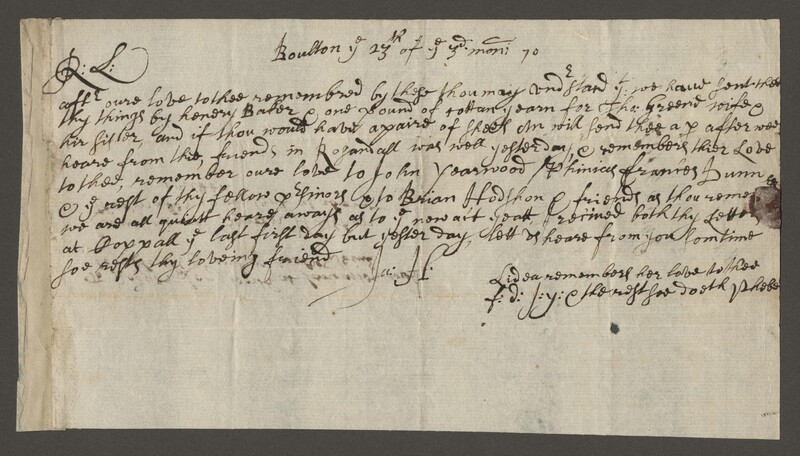 Boulton ye 23th of ye 3d moni 70
R: L:
afftr oure love to thee remembred by these thou may undrstand yt we have sent thee
thy things by henery Baker & one pound of cottan yearn for Tho: Greens wife &
hir sister, and if thou would have a paire of shees An will send thee a p after wee
heare from the, friends in Rosandall was well yesterday & remembers ther Love
to thee, remember oure love to John Yearwood Phinicas Frances Dunn
& ye rest of thy fellow prsinors & to Brian Hodshon & friends as thou
we are all quiatt heare aways as to ye new act yeatt, I recived both thy Lette
at ye last first day but yester day, lett us heare from you somtime
soe rests thy loveing friend
Lidea remembers her love to thee
f: d: J: y: & the rest soe doeth Phebe